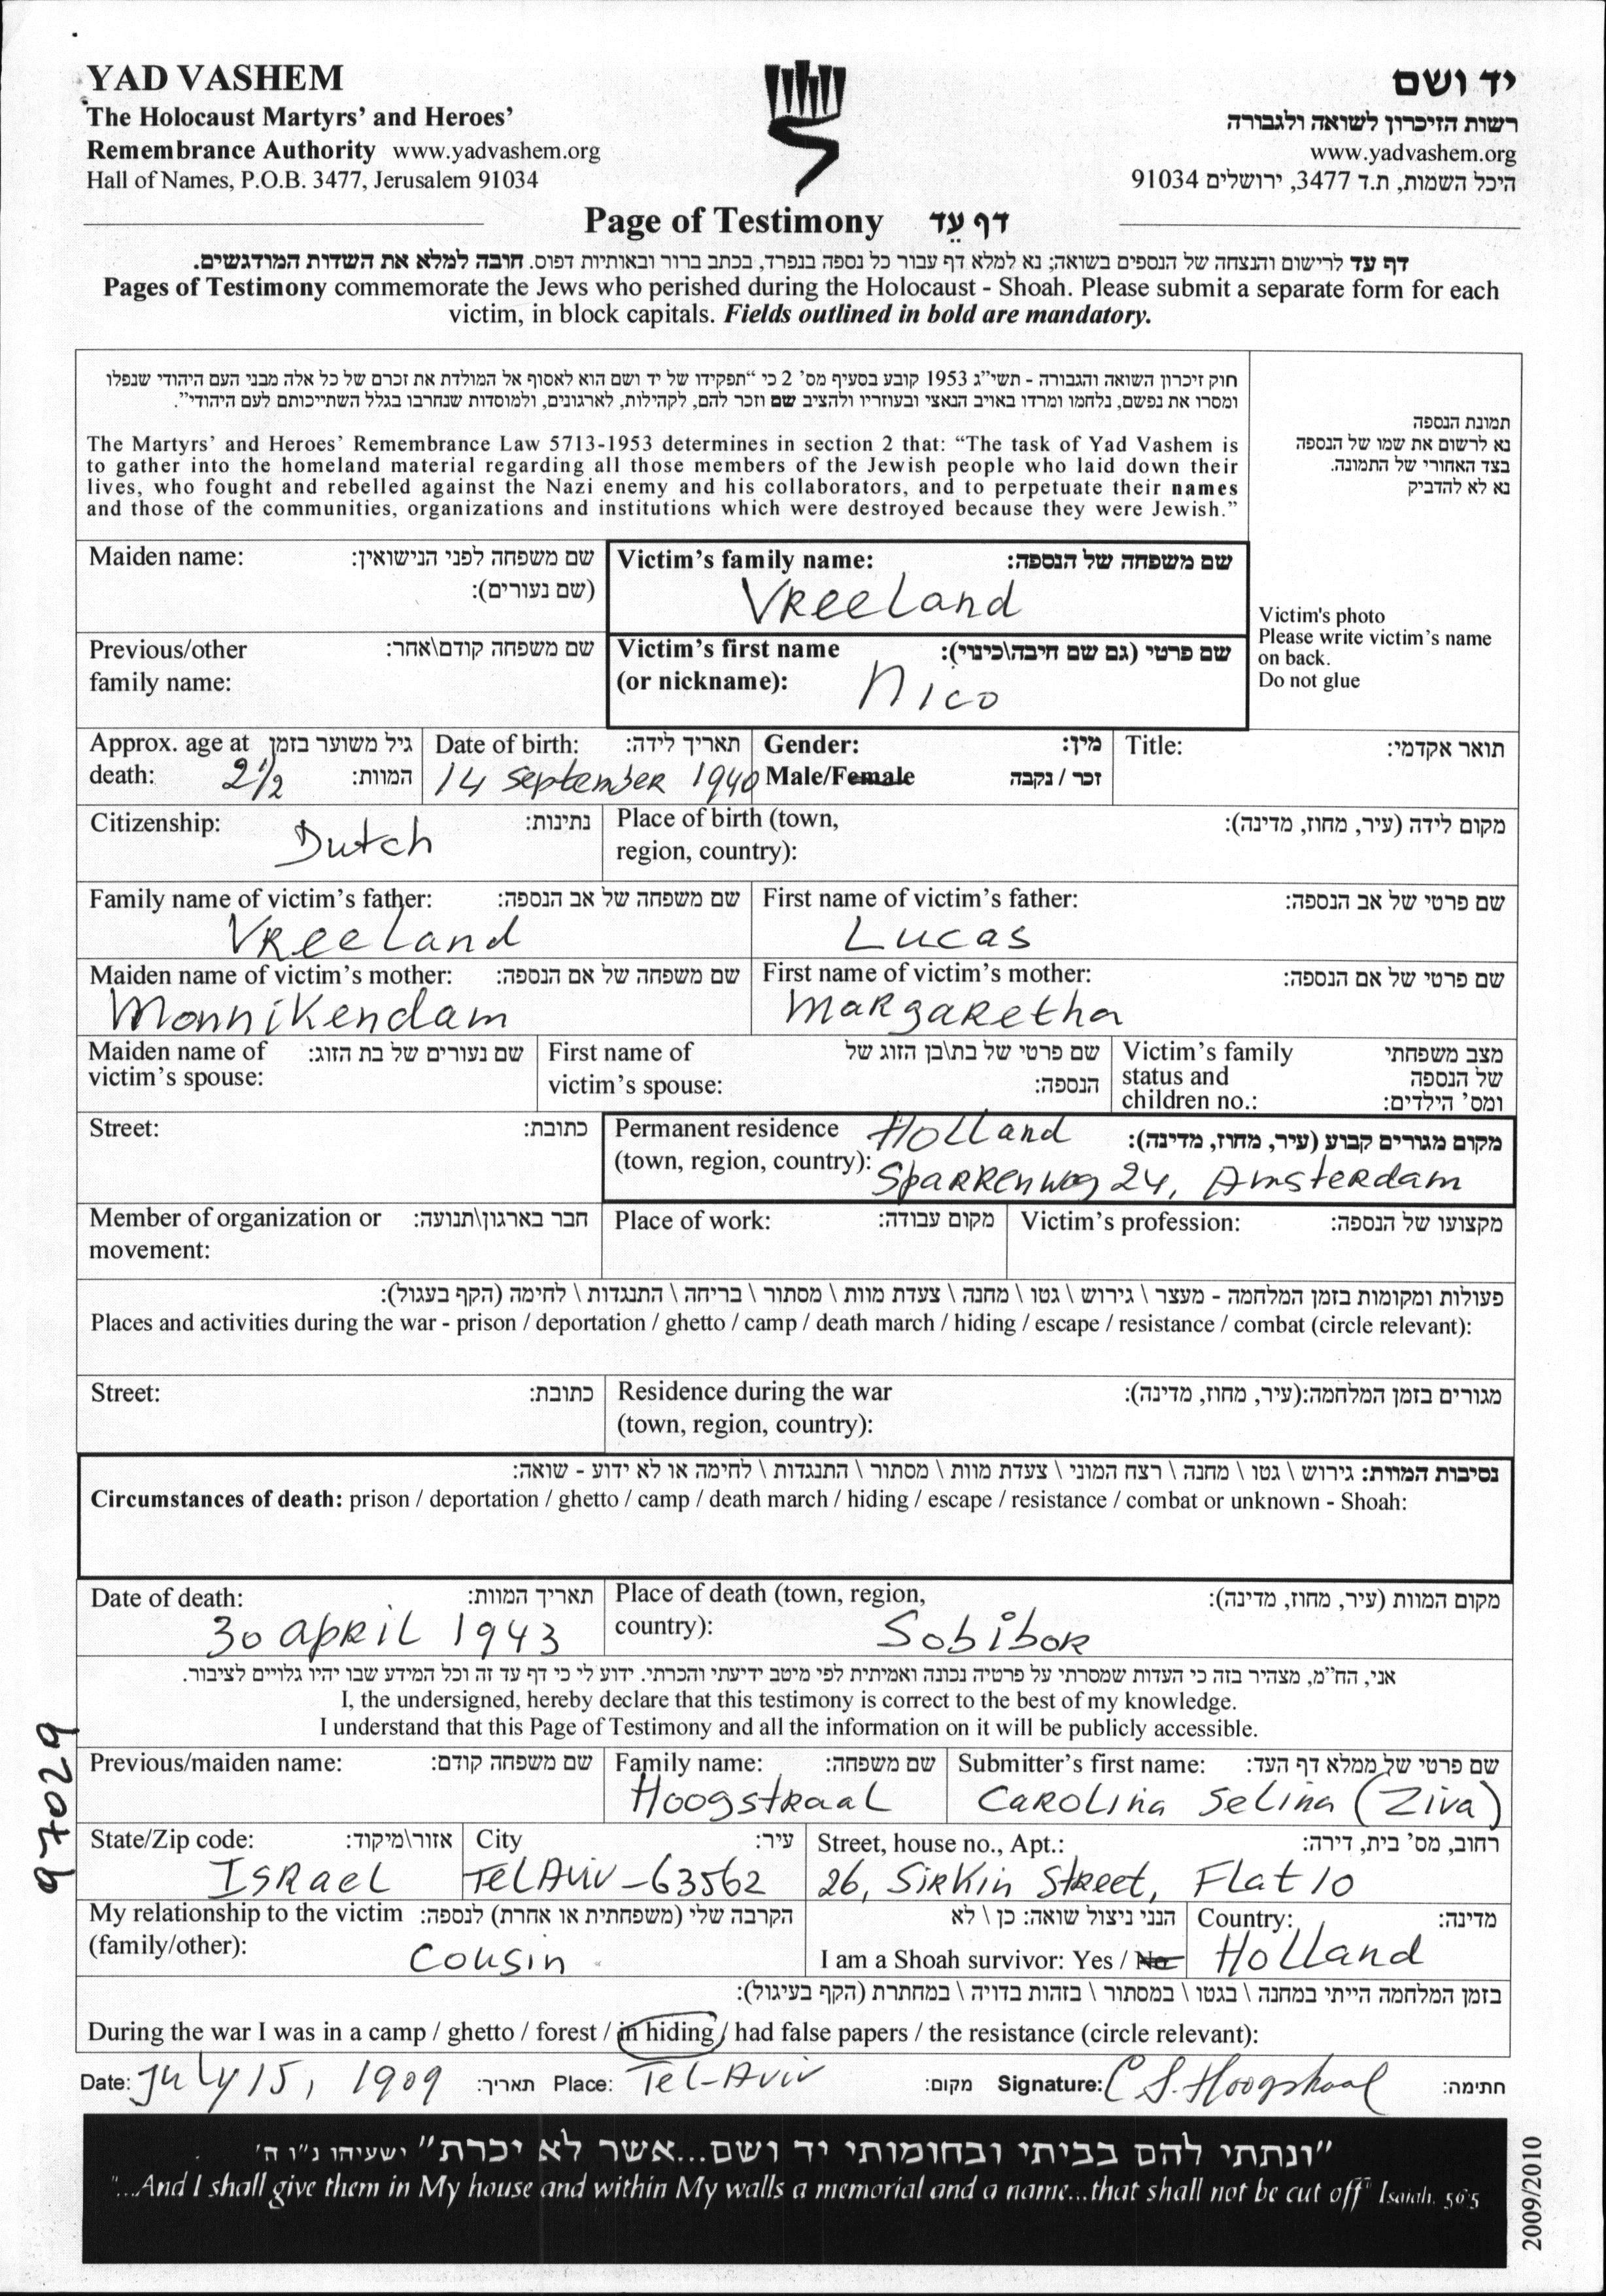 YAD VASHEM
The Holocaust Martyrs' and Heroes'
Remembrance Authority www.yadvashem.org
Hall of Names, P.O.B. 3477, Jerusalem 91034
יד ושם
רשות הזיכרון לשואה ולגבורה
www.yadvashem.org
היכל השמות, ת.ד 3477, ירושלים 91034
Page of Testimony דף עֵד
דף עד לרישום והנצחה של הנספים בשואה; נא למלא דף עבור כל נספה בנפרד, בכתב ברור ובאותיות דפוס. חובה למלא את השדות המודגשים.
Pages of Testimony commemorate the Jews who perished during the Holocaust - Shoah. Please submit a separate form for each
victim, in block capitals. Fields outlined in bold are mandatory.
חוק זיכרון השואה והגבורה - תשי"ג 1953 קובע בסעיף מס' 2 כי "תפקידו של יד ושם הוא לאסוף אל המולדת את זכרם של כל אלה מבני העם היהודי שנפלו
ומסרו את נפשם, נלחמו ומרדו באויב הנאצי ובעוזריו ולהציב שם וזכר להם, לקהילות, לארגונים, ולמוסדות שנחרבו בגלל השתייכותם לעם היהודי".
The Martyrs' and Heroes' Remembrance Law 5713-1953 determines in section 2 that: "The task of Yad Vashem is
to gather into the homeland material regarding all those members of the Jewish people who laid down their
lives, who fought and rebelled against the Nazi enemy and his collaborators, and to perpetuate their names
and those of the communities, organizations and institutions which were destroyed because they were Jewish."
תמונת הנספה
נא לרשום את שמו של הנספה
בצד האחורי של התמונה.
נא לא להדביק
Victim's photo
Please write victim's name
on back.
Do not glue
Maiden name: שם משפחה לפני הנישואין:
(שם נעורים):
Victim's family name: שם משפחה של הנספה:
Vreeland
Previous/other שם משפחה קודם\אחר:
family name:
Victim's first name שם פרטי (גם שם חיבה\כינוי):
(or nickname): Nico
Approx. age at גיל משוער בזמן
death: 2½ המוות:
Date of birth: תאריך לידה:
14 september 1940
Gender: מין:
Male/Female זכר / נקבה
Title: תואר אקדמי:
Citizenship: Dutch נתינות:
Place of birth (town, מקום לידה (עיר, מחוז, מדינה):
region, country):
Family name of victim's father: שם משפחה של אב הנספה:
Vreeland
First name of victim's father: שם פרטי של אב הנספה:
Lucas
Maiden name of victim's mother: שם משפחה של אם הנספה:
Monnikendam
First name of victim's mother: שם פרטי של אם הנספה:
Margaretha
Maiden name of שם נעורים של בת הזוג:
victim's spouse:
First name of שם פרטי של בת\בן הזוג של
victim's spouse: הנספה:
Victim's family מצב משפחתי
status and של הנספה
children no.: ומס' הילדים:
Street: כתובת:
Permanent residence Holland מקום מגורים קבוע (עיר, מחוז, מדינה):
(town, region, country): Sparrenweg 24, Amsterdam
Member of organization or חבר בארגון\תנועה:
movement:
Place of work: מקום עבודה:
Victim's profession: מקצועו של הנספה:
פעולות ומקומות בזמן המלחמה - מעצר \ גירוש \ גטו \ מחנה \ צעדת מוות \ מסתור \ בריחה \ התנגדות \ לחימה (הקף בעגול):
Places and activities during the war - prison / deportation / ghetto / camp / death march / hiding / escape / resistance / combat (circle relevant):
Street: כתובת:
Residence during the war מגורים בזמן המלחמה:(עיר, מחוז, מדינה):
(town, region, country):
נסיבות המוות: גירוש \ גטו \ מחנה \ רצח המוני \ צעדת מוות \ מסתור \ התנגדות \ לחימה או לא ידוע - שואה:
Circumstances of death: prison / deportation / ghetto / camp / death march / hiding / escape / resistance / combat or unknown - Shoah:
Date of death: תאריך המוות:
30 april 1943
Place of death (town, region, מקום המוות (עיר, מחוז, מדינה):
country): Sobibor
אני, הח"מ, מצהיר בזה כי העדות שמסרתי על פרטיה נכונה ואמיתית לפי מיטב ידיעתי והכרתי. ידוע לי כי דף עד זה וכל המידע שבו יהיו גלויים לציבור.
I, the undersigned, hereby declare that this testimony is correct to the best of my knowledge.
I understand that this Page of Testimony and all the information on it will be publicly accessible.
Previous/maiden name: שם משפחה קודם:
Family name: שם משפחה:
Hoogstraal
Submitter's first name: שם פרטי של ממלא דף העד:
Carolina Selina (Ziva)
State/Zip code: אזור\מיקוד:
Israel
City עיר:
Tel Aviv-63562
Street, house no., Apt.: רחוב, מס' בית, דירה:
26, Sirkin Street, Flat 10
My relationship to the victim הקרבה שלי (משפחתית או אחרת) לנספה:
(family/other): Cousin
הנני ניצול שואה: כן \ לא
I am a Shoah survivor: Yes / No
Country: מדינה:
Holland
בזמן המלחמה הייתי במחנה \ בגטו \ במסתור \ בזהות בדויה \ במחתרת (הקף בעיגול):
During the war I was in a camp / ghetto / forest / in hiding / had false papers / the resistance (circle relevant):
Date: July 15, 1909 תאריך: Place: Tel-Aviv מקום: Signature: C S. Hoogstraal חתימה:
"ונתתי להם בביתי ובחומותי יד ושם...אשר לא יכרת" ישעיהו נ"ו ה'
"...And I shall give them in My house and within My walls a memorial and a name...that shall not be cut off" Isaiah. 56:5
97029
2009/2010